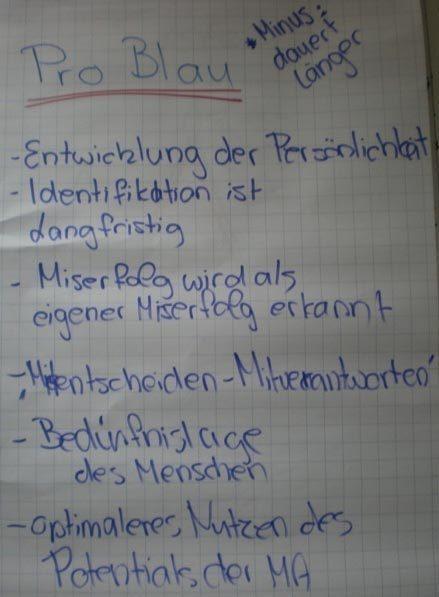 Pro Blau
* Minus:
dauert
länger
- Entwicklung der Persönlichkeit
- Identifikation ist
langfristig
- Miserfolg wird als
eigener Miserfolg erkannt
- „Mitentscheiden - Mitverantworten"
- Bedürfnislage
des Menschen
- optimaleres Nutzen des
Potentials der MA